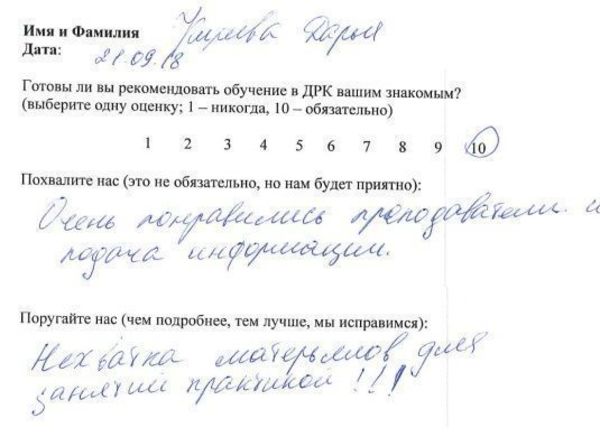 Имя и Фамилия Дарья
Дата: 21.09.18
Готовы ли вы рекомендовать обучение в ДРК вашим знакомым?
(выберите одну оценку; 1 – никогда, 10 – обязательно)
1 2 3 4 5 6 7 8 9 10
Похвалите нас (это не обязательно, но нам будет приятно):
Очень понравились преподаватели и
подача информации.
Поругайте нас (чем подробнее, тем лучше, мы исправимся):
Нехватка матерьялов для
занятий практикой !!!